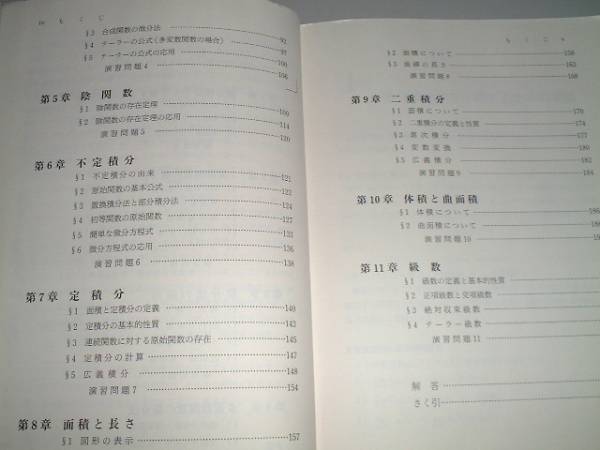 もくじ
§3 合成関数の微分法 92
§4 テーラーの公式(多変数関数の場合) 97
§5 テーラーの公式の応用 100
演習問題4 106
第5章 陰関数
§1 陰関数の存在定理 109
§2 陰関数の存在定理の応用 114
演習問題5 120
第6章 不定積分
§1 不定積分の由来 121
§2 原始関数の基本公式 122
§3 置換積分法と部分積分法 124
§4 初等関数の原始関数 127
§5 簡単な微分方程式 133
§6 微分方程式の応用 136
演習問題6 138
第7章 定積分
§1 面積と定積分の定義 140
§2 定積分の基本的性質 143
§3 連続関数に対する原始関数の存在 145
§4 定積分の計算 147
§5 広義積分 148
演習問題7 154
第8章 面積と長さ
§1 図形の表示 157
もくじ
§2 面積について 158
§3 曲線の長さ 163
演習問題8 168
第9章 二重積分
§1 面積について 170
§2 二重積分の定義と性質 174
§3 累次積分 177
§4 変数変換 180
§5 広義積分 182
演習問題9 184
第10章 体積と曲面積
§1 体積について 186
§2 曲面積について
演習問題10
第11章 級数
§1 級数の定義と基本的性質
§2 正項級数と交項級数
§3 絶対収束級数
§4 テーラー級数
演習問題11
解答
さく引